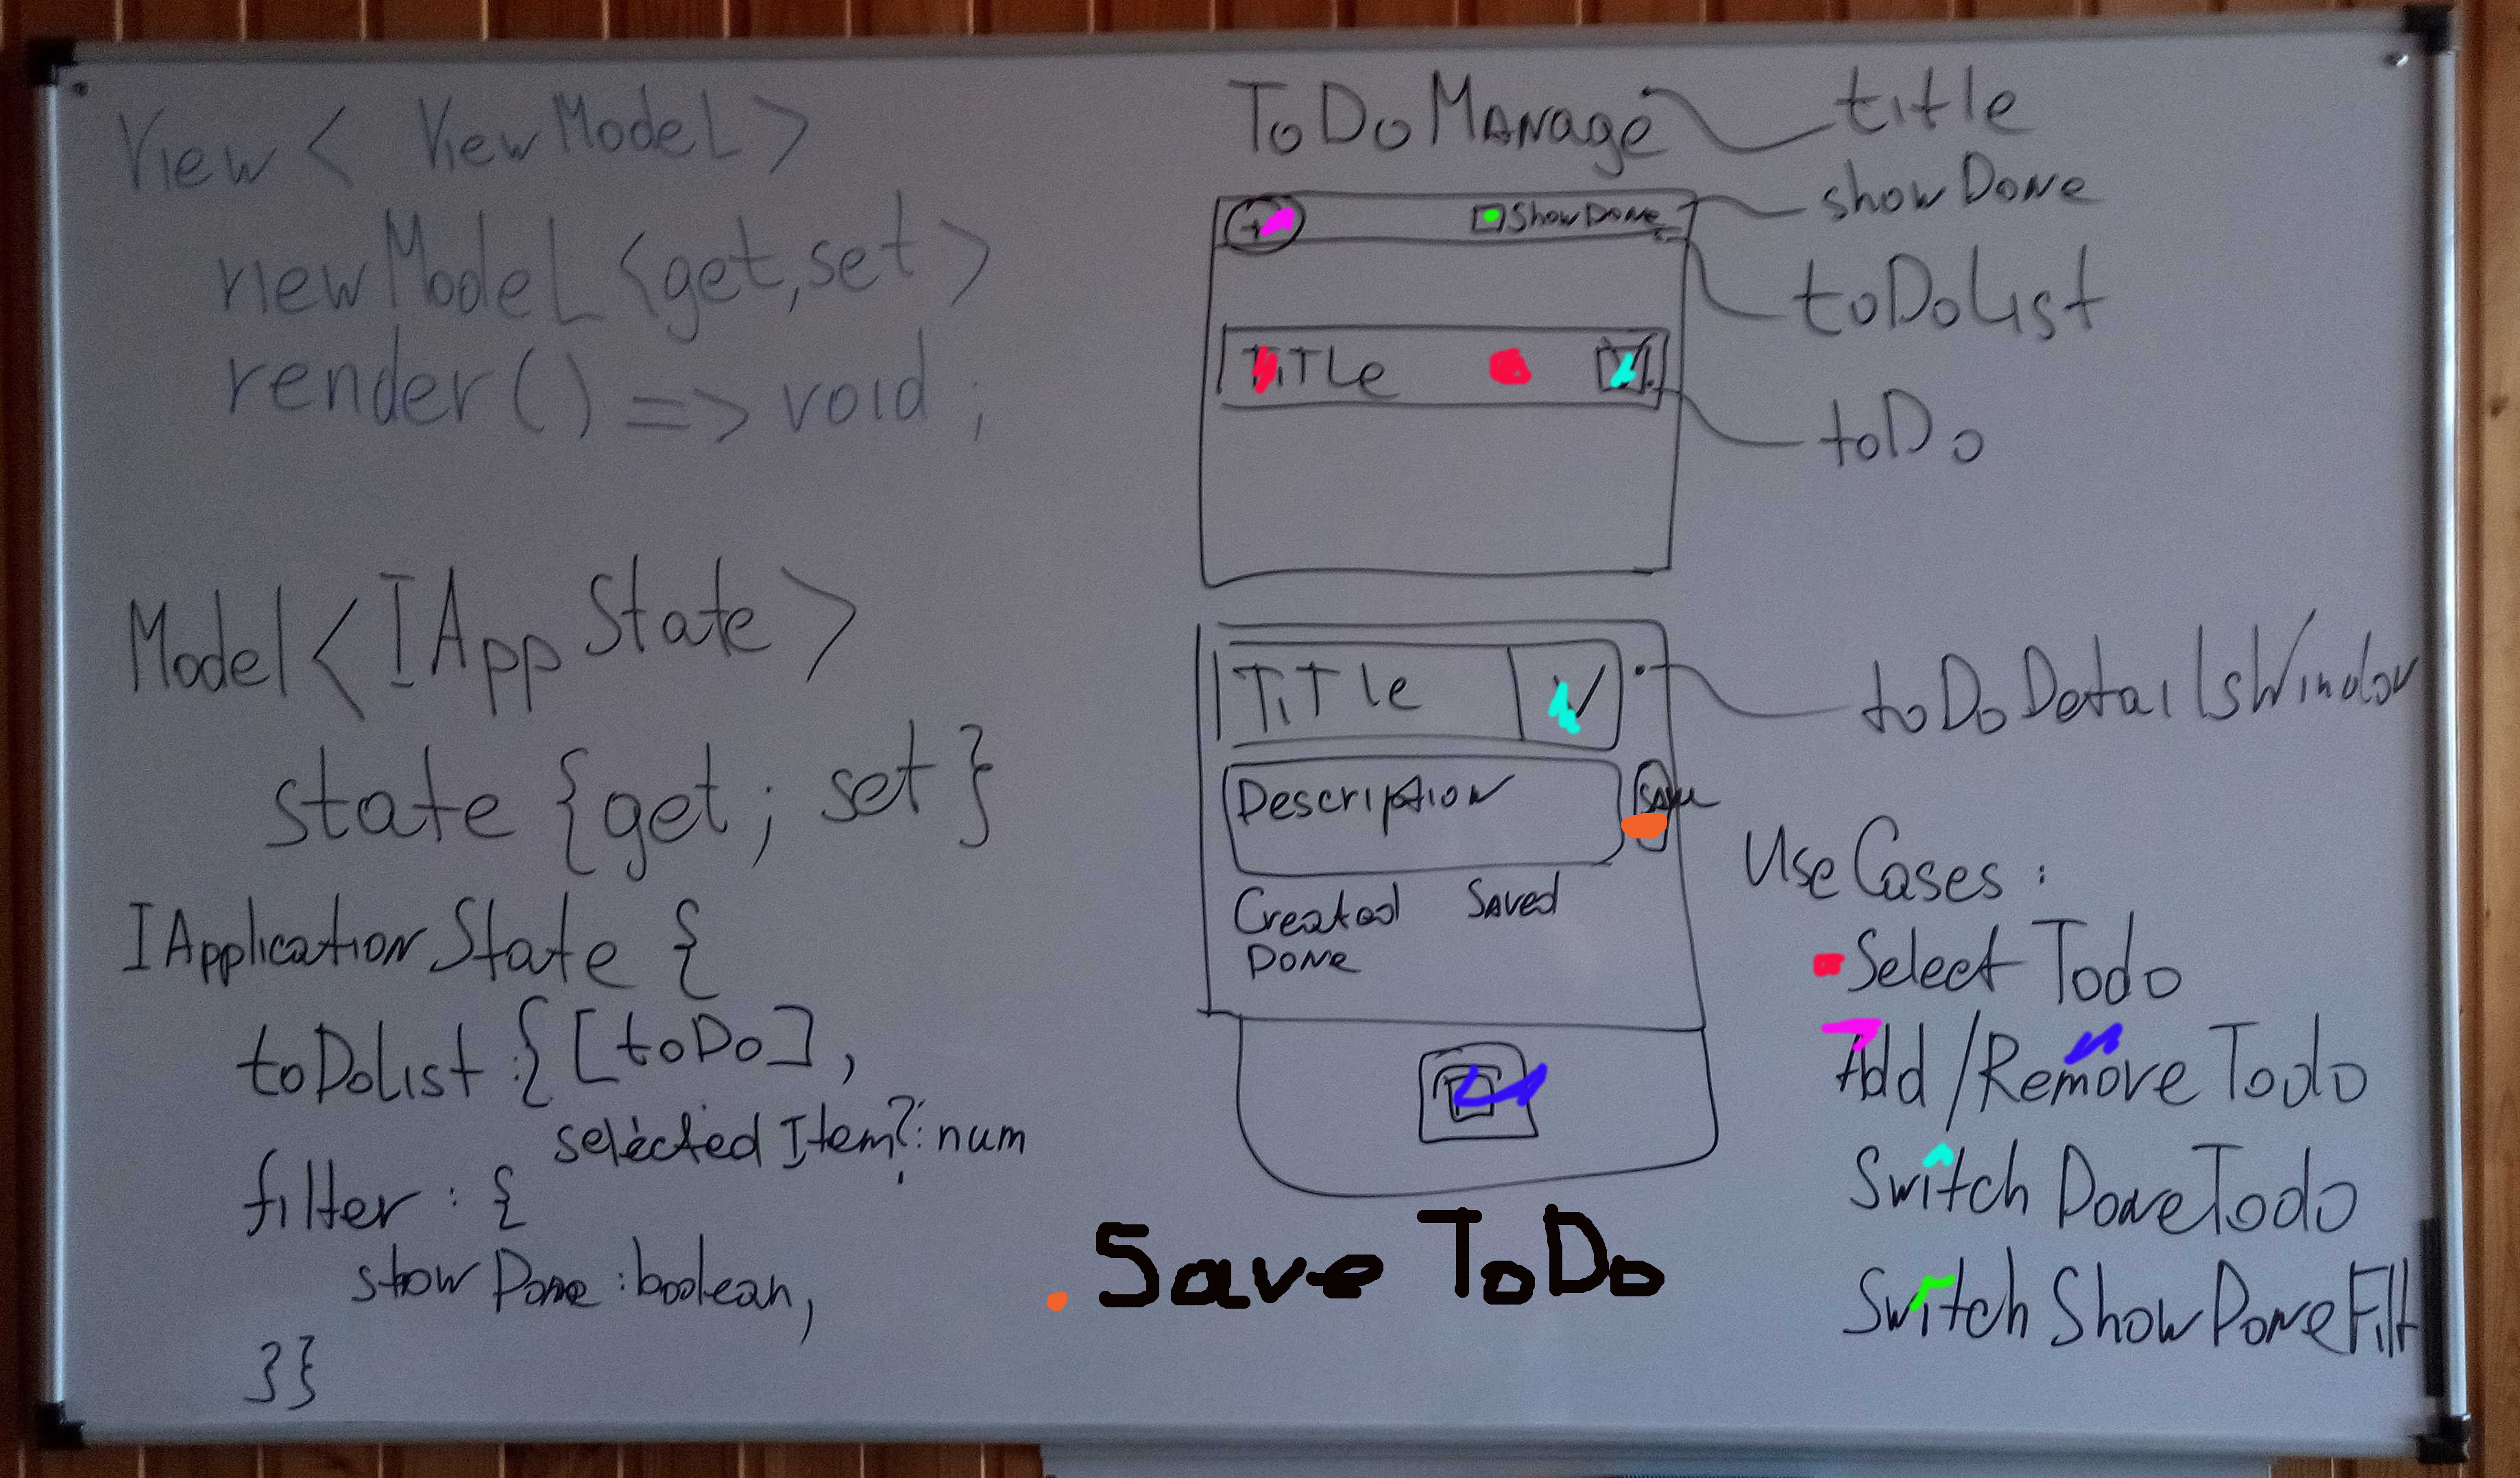 View < ViewModel >
viewModel <get, set >
render () => void ;
Model < IAppState >
state {get ; set }
IApplicationState {
toDoList : { [toDo] ,
selectedItem? : num
filter : {
show Done : boolean ,
}}
ToDo Manage
title
+
Show Done
showDone
toDoList
TiTLe
toDo
TiTle
toDoDetailsWindow
Description
Save
Created Saved
Done
Use Cases :
- Select Todo
Add / Remove Todo
Switch DoneTodo
Switch ShowDoneFilt
. Save ToDo